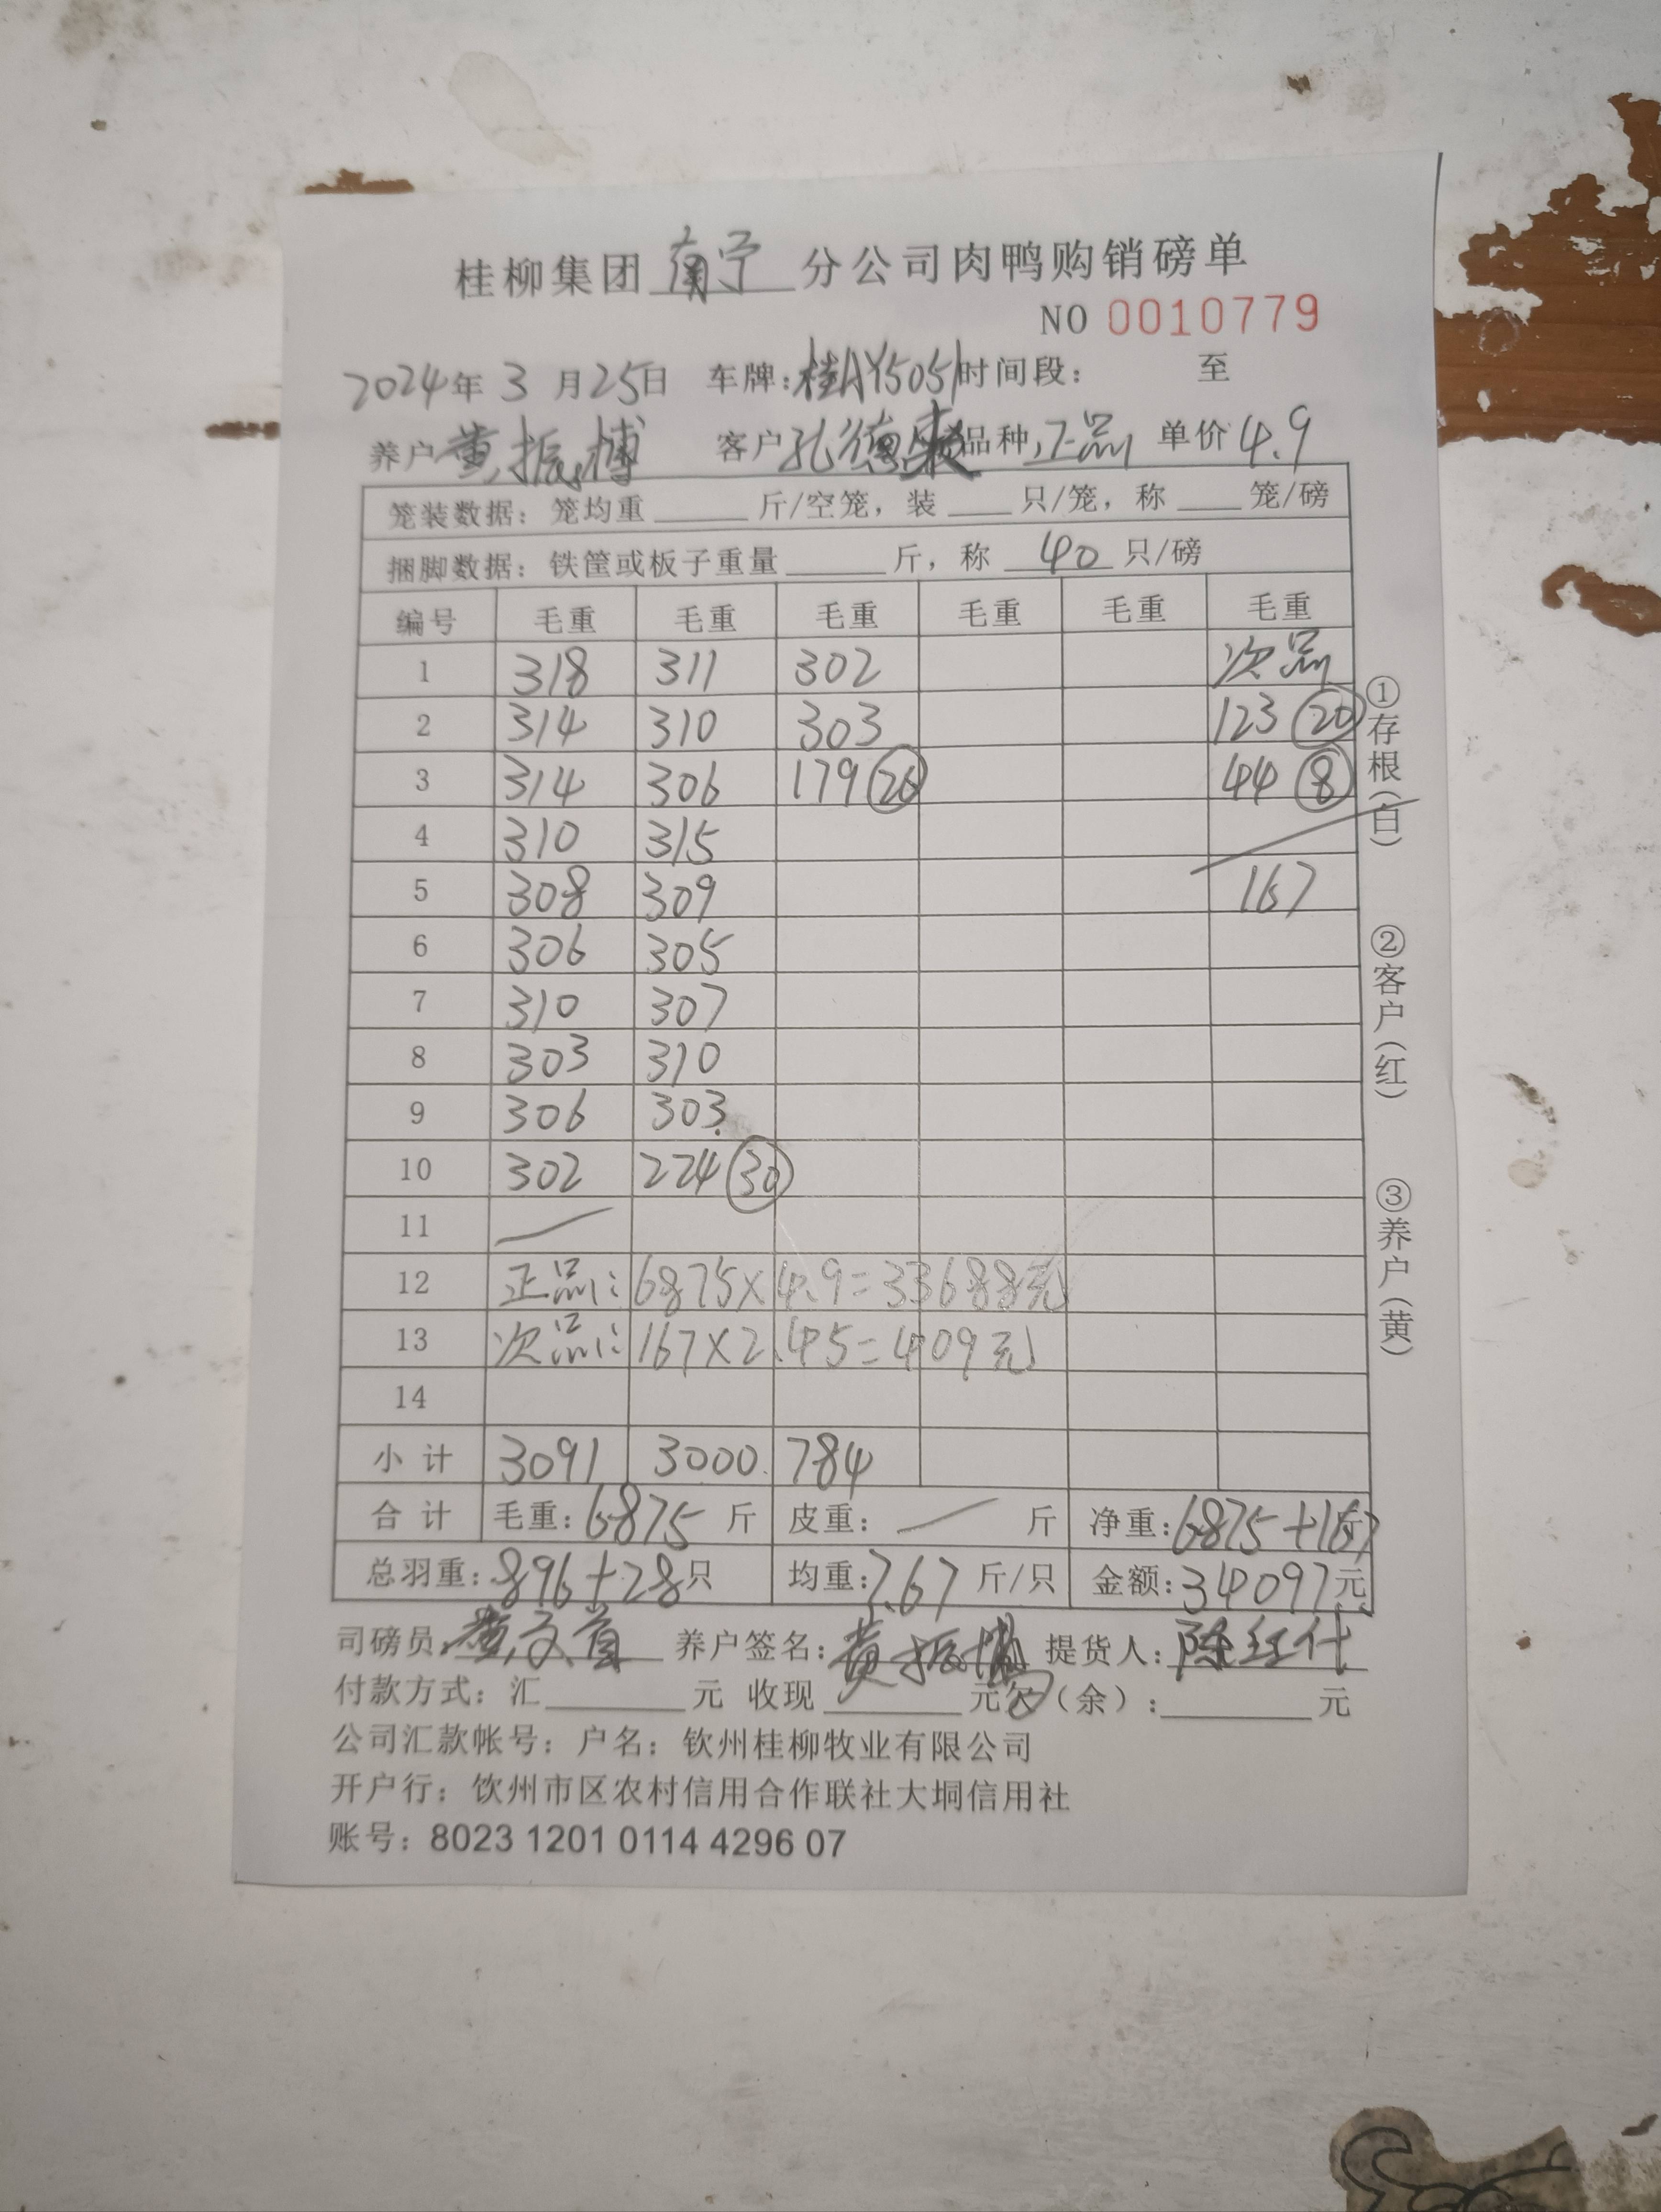 桂柳集团 南宁 分公司肉鸭购销磅单
NO 0010779
2024年 3 月 25日 车牌:桂AY5051 时间段: 至
养户 黄振博 客户 孔德 品种 正品 单价 4.9
笼装数据: 笼均重 斤/空笼, 装 只/笼, 称 笼/磅
捆脚数据: 铁筐或板子重量 斤, 称 40 只/磅
编号 毛重 毛重 毛重 毛重 毛重 毛重
1 318 311 302 次品
2 314 310 303 123 20
3 314 306 179 26 44 8
4 310 315
5 308 309 167
6 306 305
7 310 307
8 303 310
9 306 303
10 302 224 30
11
12 正品: 6875×4.9=33688元
13 次品: 167×2.45=409元
14
小计 3091 3000 784
合计 毛重: 6875 斤 皮重: 斤 净重: 6875+167斤
总羽重: 896+28只 均重: 7.67 斤/只 金额: 34097元
司磅员: 黄 养户签名: 黄振博 提货人: 陈红仕
付款方式: 汇 元 收现 元欠(余): 元
公司汇款帐号: 户名: 钦州桂柳牧业有限公司
开户行: 饮州市区农村信用合作联社大垌信用社
账号: 8023 1201 0114 4296 07
①存根(白)
②客户(红)
③养户(黄)